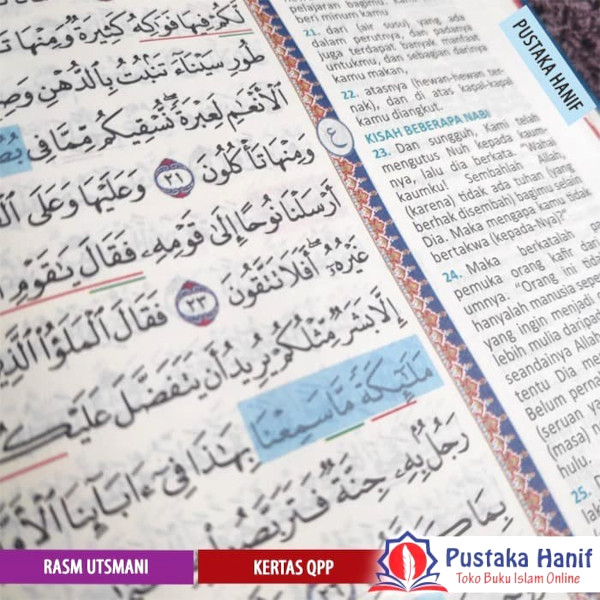 لَكُمْ فِيهَا فَوَٰكِهُ كَثِيرَةٌ وَمِنْهَا
طُورِ سَيْنَآءَ تَنۢبُتُ بِٱلدُّهْنِ وَصِ
ٱلْأَنْعَٰمِ لَعِبْرَةً ۖ نُّسْقِيكُم مِّمَّا فِى بُطُ
وَمِنْهَا تَأْكُلُونَ ٢١ وَعَلَيْهَا وَعَلَى ٱلْ
أَرْسَلْنَا نُوحًا إِلَىٰ قَوْمِهِۦ فَقَالَ يَٰقَوْمِ
غَيْرُهُۥٓ ۖ أَفَلَا تَتَّقُونَ ٢٣ فَقَالَ ٱلْمَلَؤُا۟ ٱلَّذِي
إِلَّا بَشَرٌ مِّثْلُكُمْ يُرِيدُ أَن يَتَفَضَّلَ عَلَيْكُ
مَلَٰٓئِكَةً مَّا سَمِعْنَا بِهَٰذَا فِىٓ ءَابَآئِنَا ٱلْأَوَّ
رَجُلٌۢ بِهِۦ جِنَّةٌ فَتَرَبَّصُوا۟
بِمَا
ع
pelajaran bagimu. Kami
beri minum kamu
21. dari (air susu) yang ada
dalam perutnya, dan padanya
juga terdapat banyak manfaat
untukmu, dan sebagian darinya
kamu makan,
22. atasnya (hewan-hewan ter-
nak), dan di atas kapal-kapal
kamu diangkut.
KISAH BEBERAPA NABI
23. Dan sungguh, Kami telah
mengutus Nuh kepada kaum-
nya, lalu dia berkata. "Wahai
kaumku! Sembahlah Allah,
(karena) tidak ada tuhan (yang
berhak disembah) bagimu selain
Dia. Maka mengapa kamu tidak
bertakwa (kepada-Nya)?"
24. Maka berkatalah
pemuka orang kafir dari
umnya. "Orang ini tidak
hanyalah manusia sepe
yang ingin menjadi
lebih mulia daripad
seandainya Allah
tentu Dia me
Belum perna
(seruan ya
(masa) n
hulu.
25.
PUSTAKA HANIF
RASM UTSMANI
KERTAS QPP
Pustaka Hanif
Toko Buku Islam Online